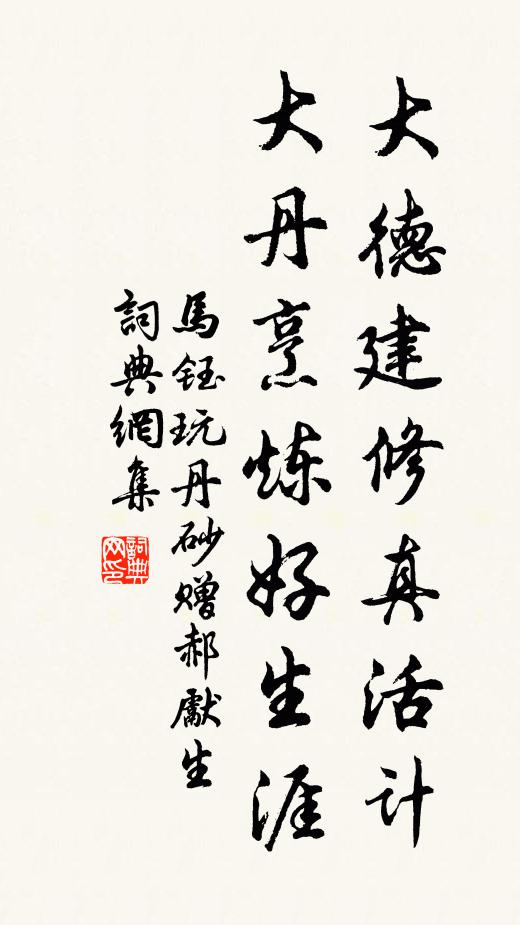 大德建修真活计
大丹烹炼好生涯
馬鈺玩丹砂赠郝獻生
詞典網集
詞典
网印